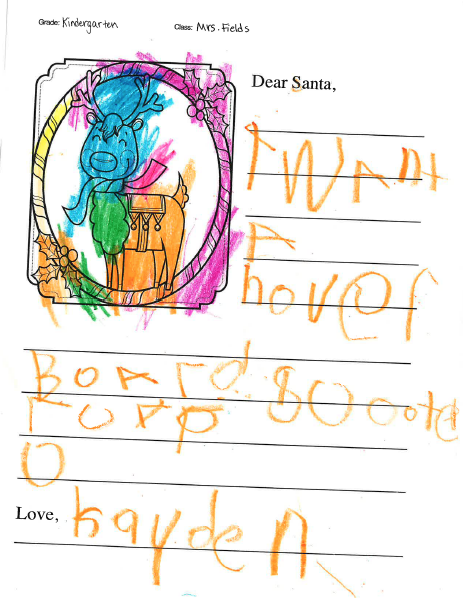 Grade: Kindergarten Class: Mrs. Fields
Dear Santa,
I WANt
A
hover
BOArd
O
Love, Kayden